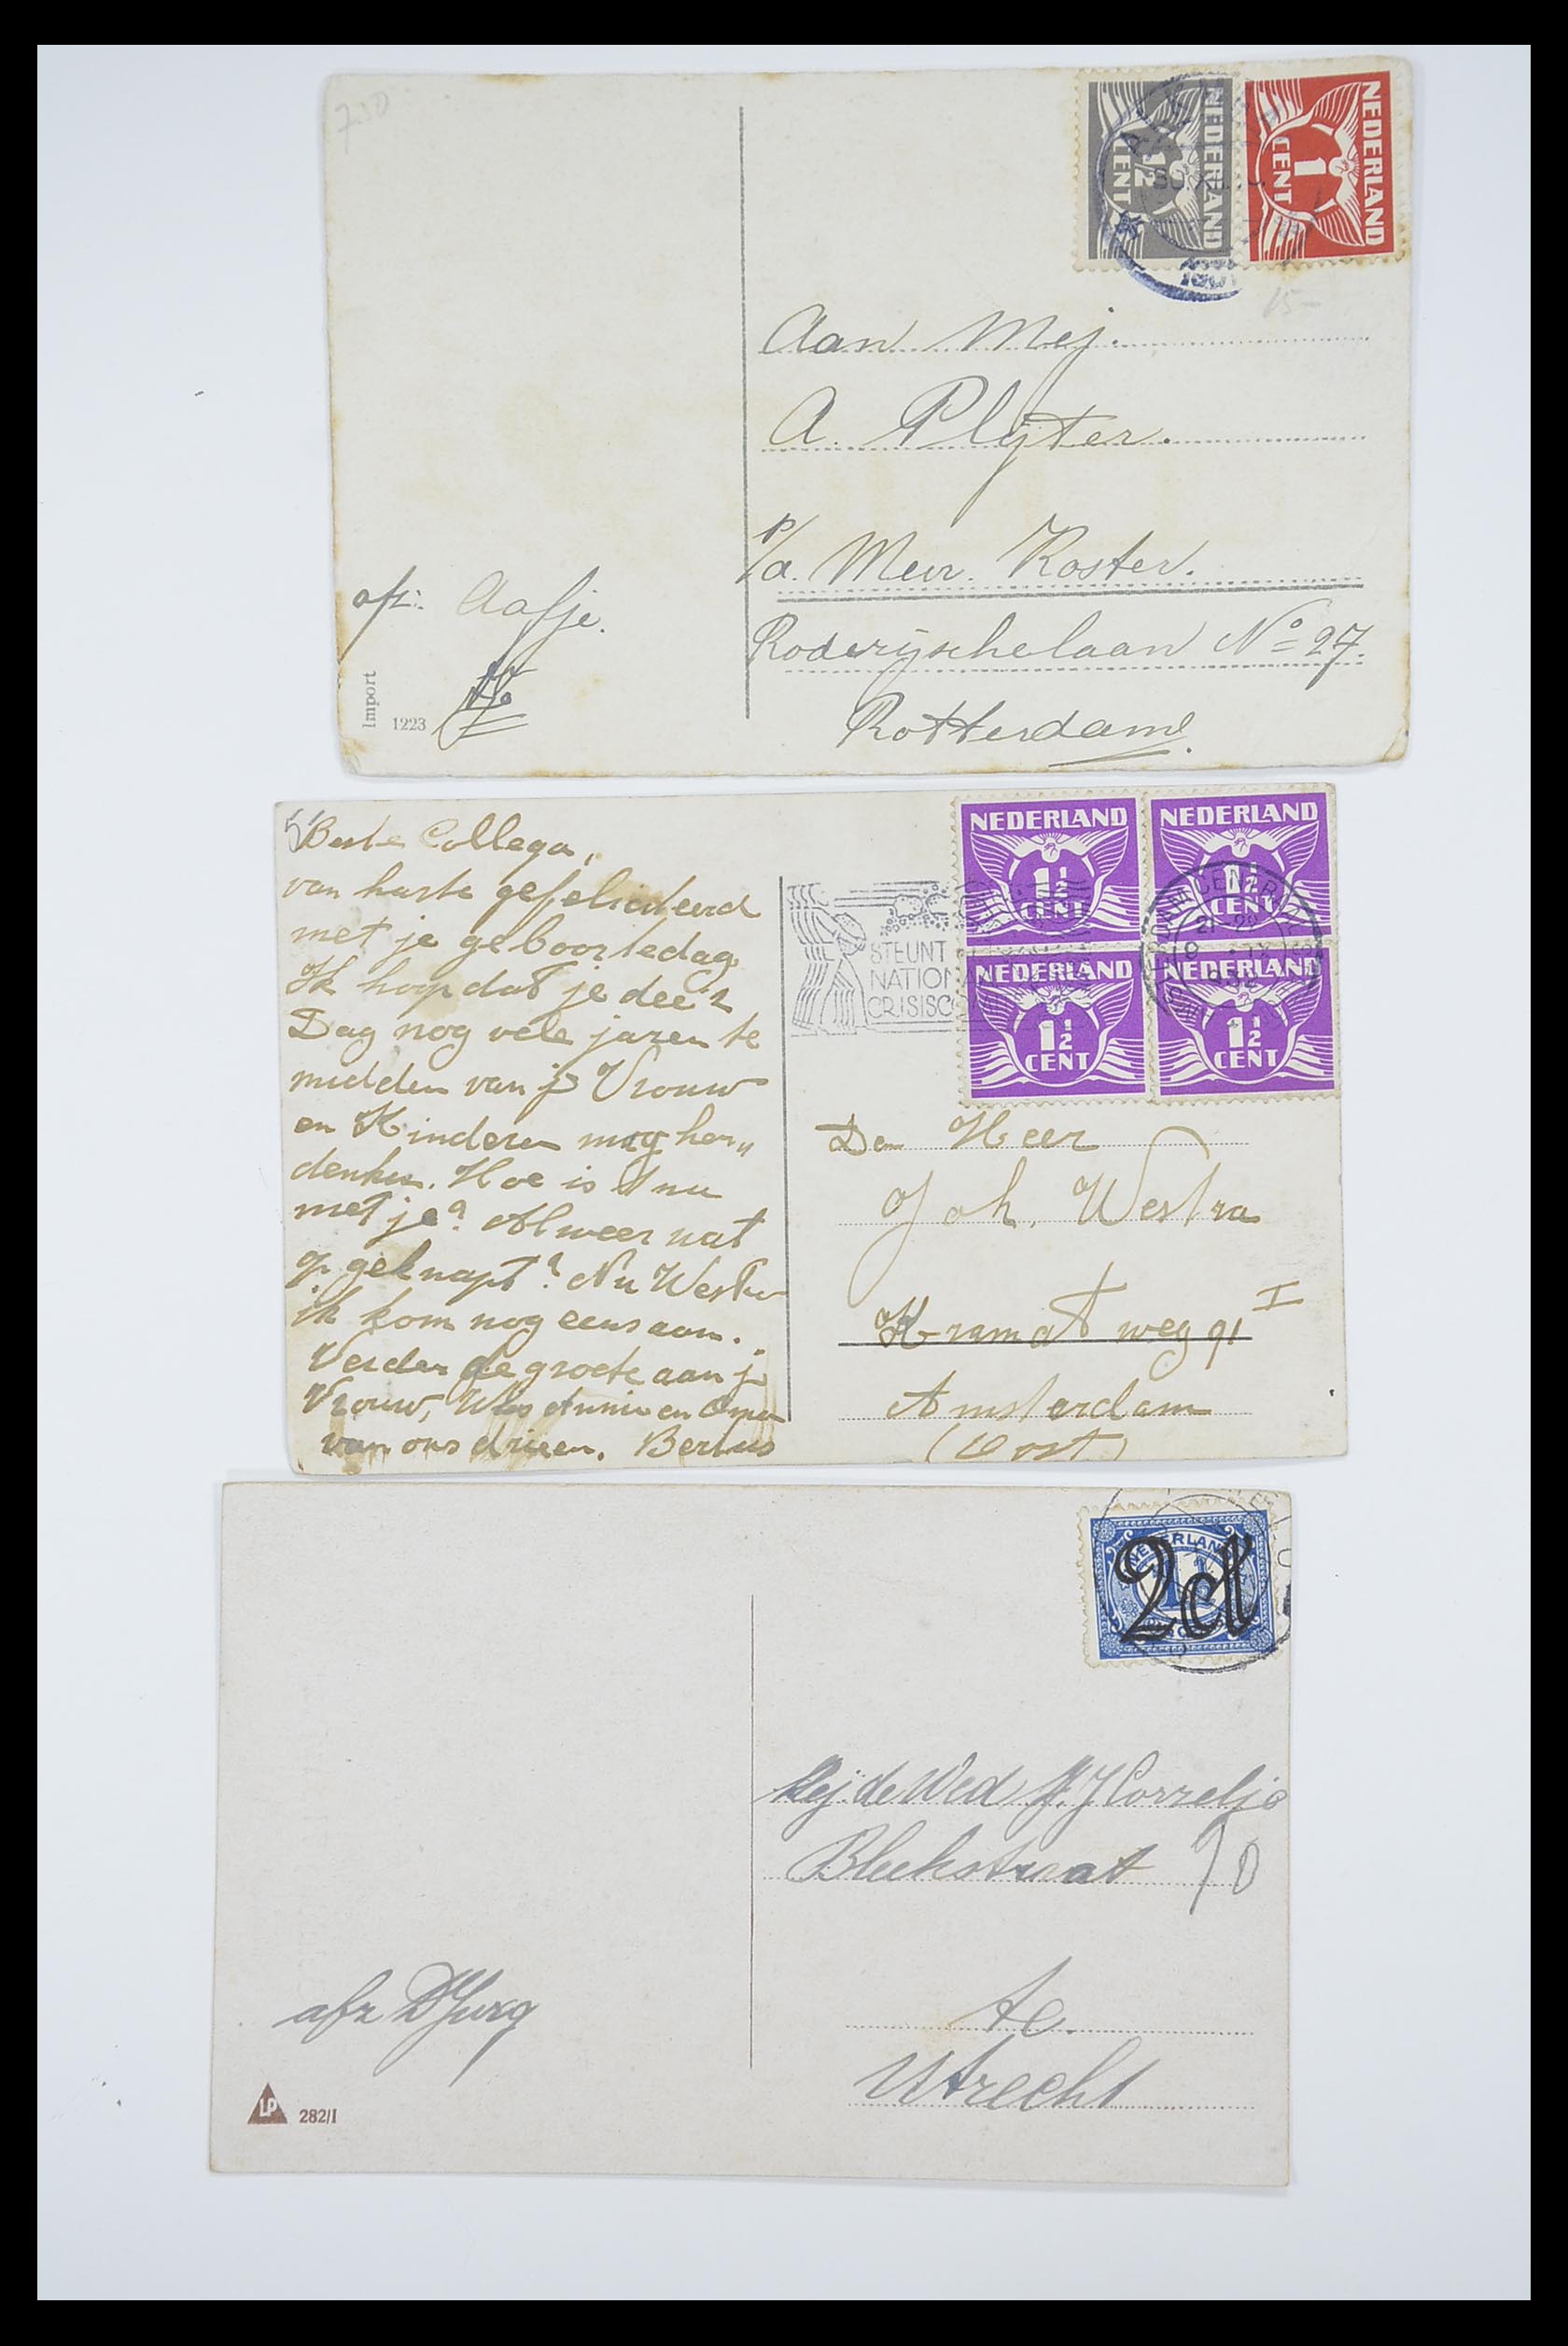 730
NEDERLAND
½
CENT
NEDERLAND
1
CENT
15-
Aan Mej.
A. Plijter.
p/a. Mevr. Koster.
Roderijschelaan No 27.
Rotterdam.
afz: Aafje.
Import
1223
Beste Collega,
van harte gefeliciteerd
met je geboortedag
Ik hoop dat je dee'z
Dag nog vele jaren te
midden van je Vrouw
en Kinderen mag her„
denken. Hoe is 't nu
met je? Alweer wat
op geknapt? Nu Westra
ik kom nog eens aan.
Verder de groete aan je
Vrouw, Annie en Oma
van ons drieen. Bertus
STEUNT
NATION
CRISISC
NEDERLAND
1½
CENT
NEDERLAND
1½
CENT
NEDERLAND
1½
CENT
NEDERLAND
1½
CENT
Den Heer
Joh. Westra
Kramatweg 91 I
Amsterdam
(Oost)
NEDERLAND
1½
2ct
Mej. de Wed J. J Correlje
Bleekstraat
te
Utrecht
afz
LP
282/I